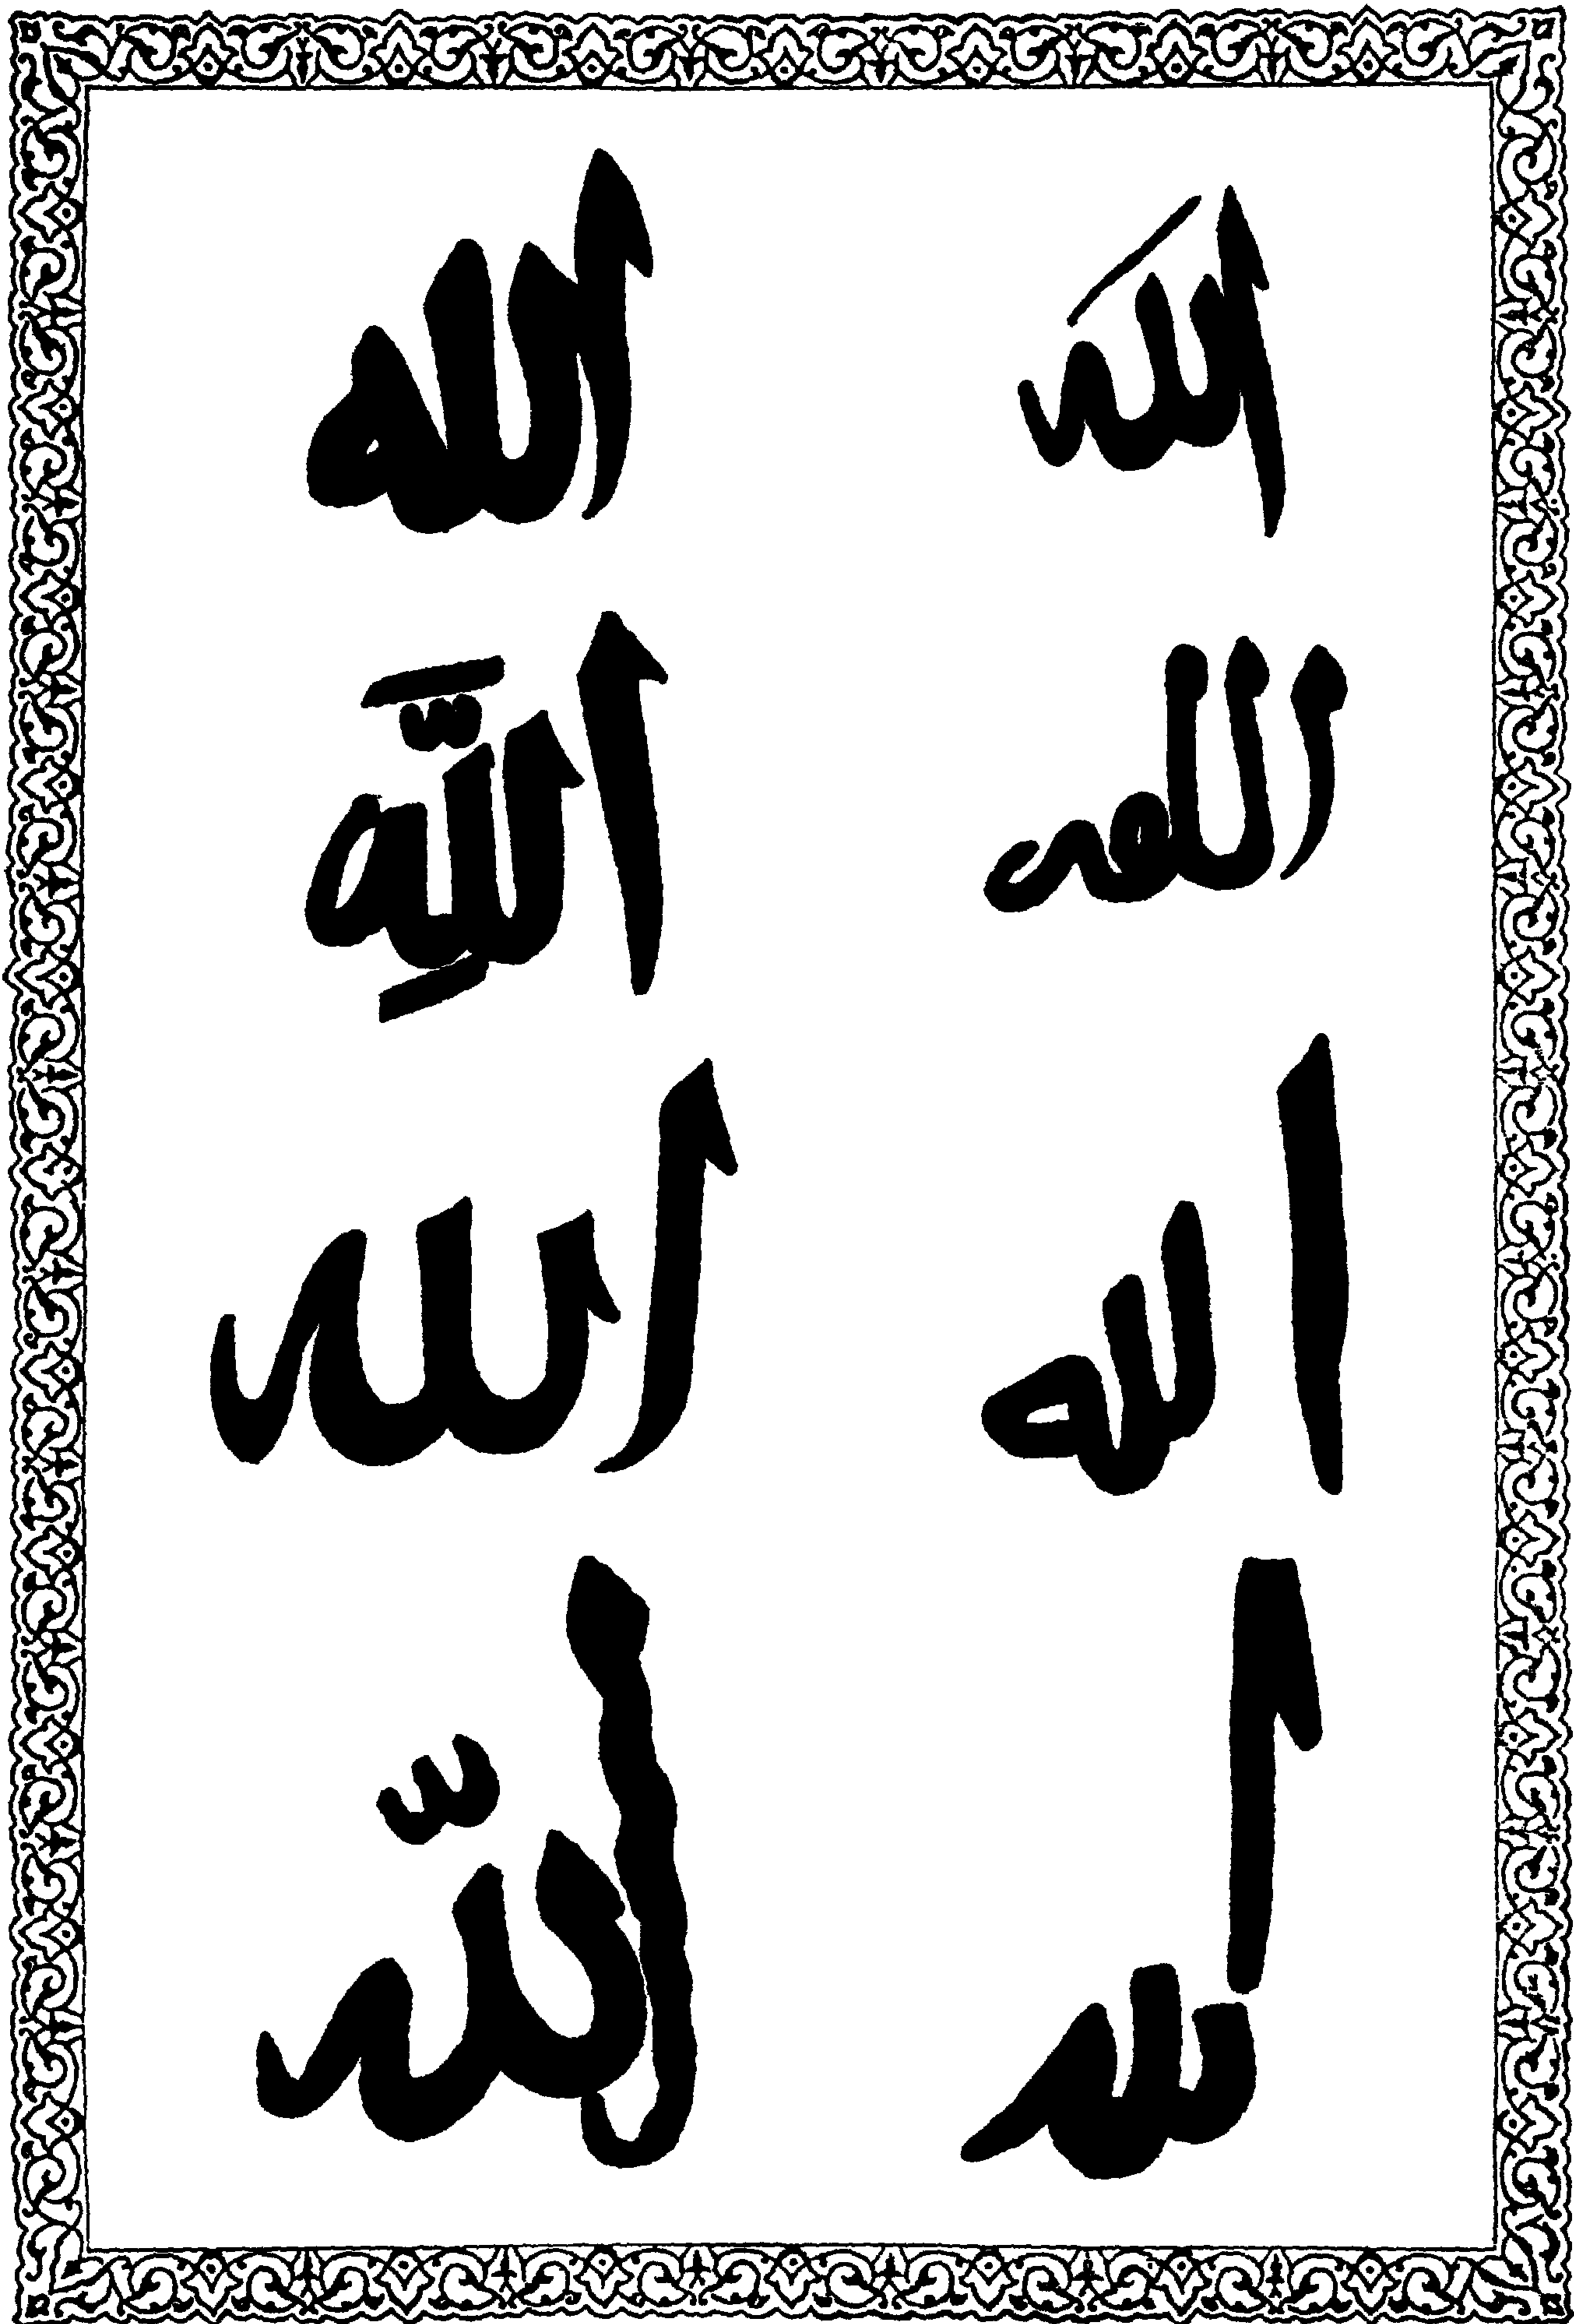 الله الله
اللـه اللّٰهِ
الله الله
الله اللّه